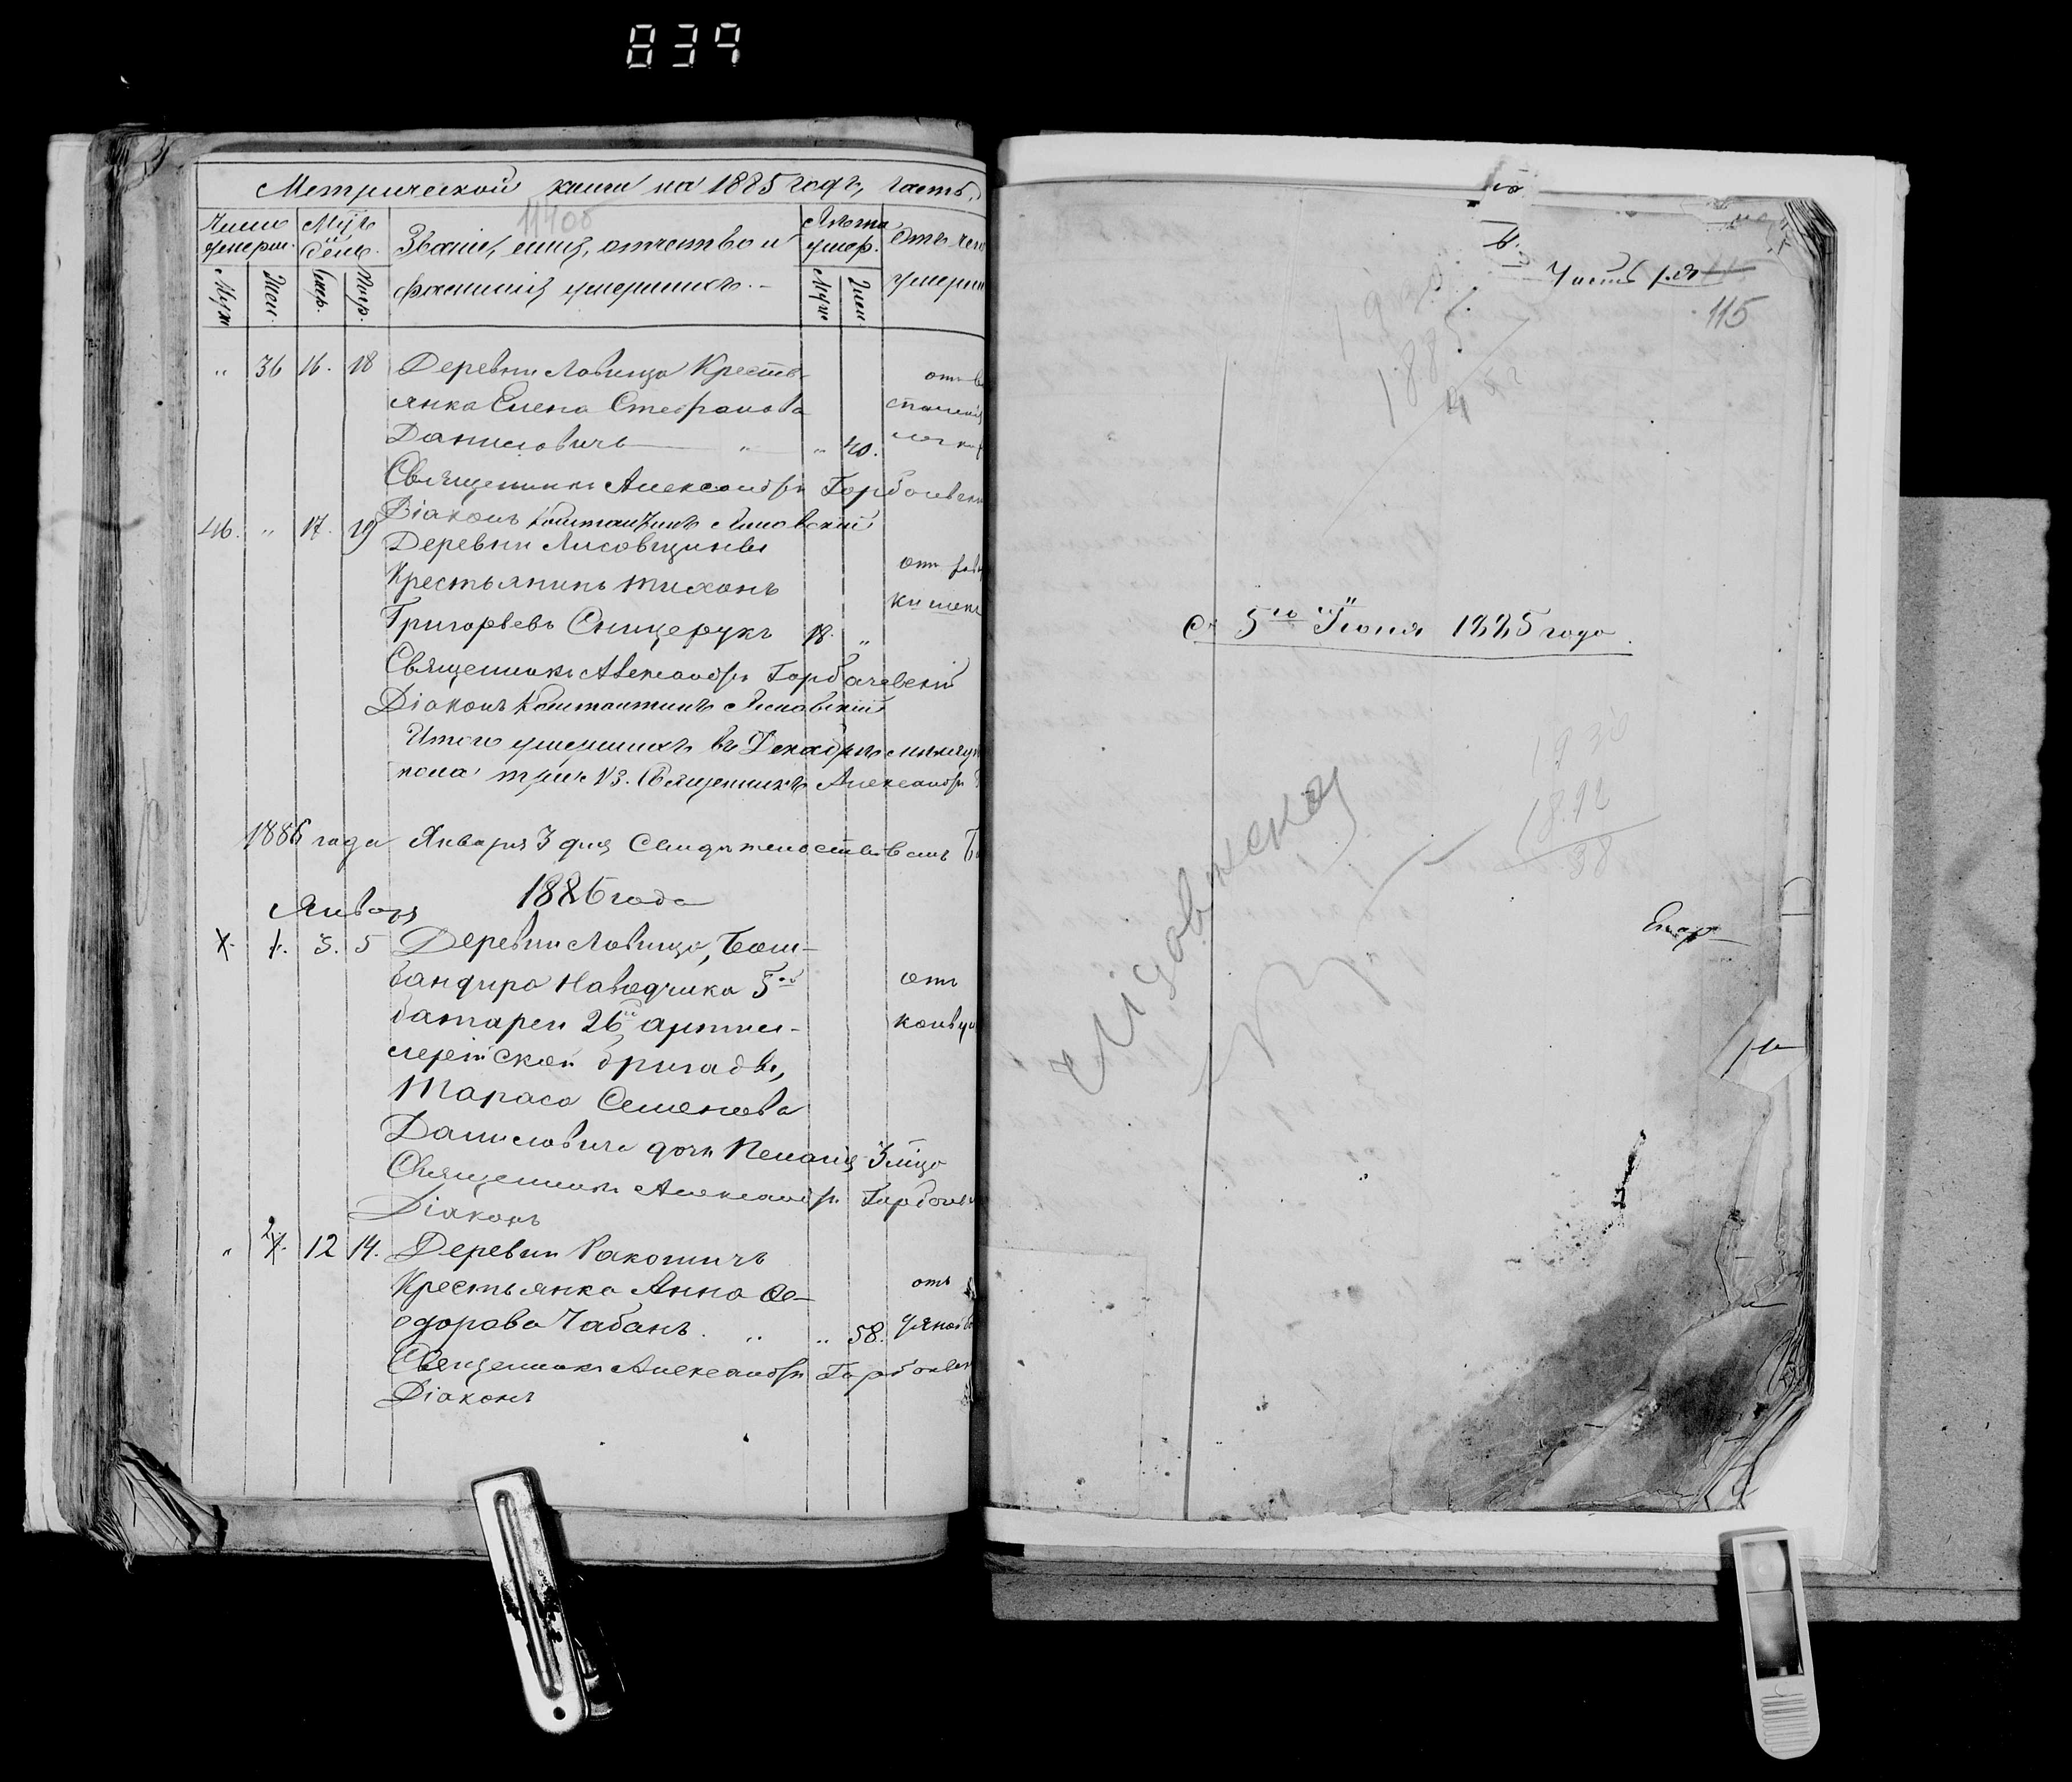 839
Метрической книги на 1885 годъ, часть
11408
Число умерш.
Мцъ и день.
Званіе, имя, отчество и фамилія умершихъ. –
Лѣта умер.
Отъ чего умерли
Муж
Жен.
Смр.
Погр.
Муж
Жен.
" 36 16. 18 Деревни Ловища Кресть-
янка Елена Стефанова
Даниловичъ " " 40.
Священникъ Александръ Горбачевскі
Діаконъ Константинъ Лисовскій
46. " 17. 19 Деревни Лисовщины
Крестьянинъ Тихонъ
Григорьевъ Сницерукъ 18. "
Священникъ Александръ Горбачевскій
Діаконъ Константинъ Лисовскій
Итого умершихъ въ Декабрѣ
пола 13. Священникъ Александръ
1886 года Января 3 дня Свидѣтельствовалъ
1886 года
Январь
1. 3. 5 Деревни Ловища, Бом-
бандира Наводчика 5ой
батареи 26й артил-
лерійской бригады,
Тараса Семенова
Даниловича дочь Пелагія 3 мцо
Священникъ Александръ Горбачев
Діаконъ
" 2. 12 14. Деревни Ракотичъ
Крестьянка Анна Ѳе-
одорова Чабанъ. " " 58.
Священникъ Александръ Горбачев
Діаконъ
отъ
отъ
отъ
Часть 1.я
115
1885
съ 5го Іюня 1885 года.
1930
1892
38